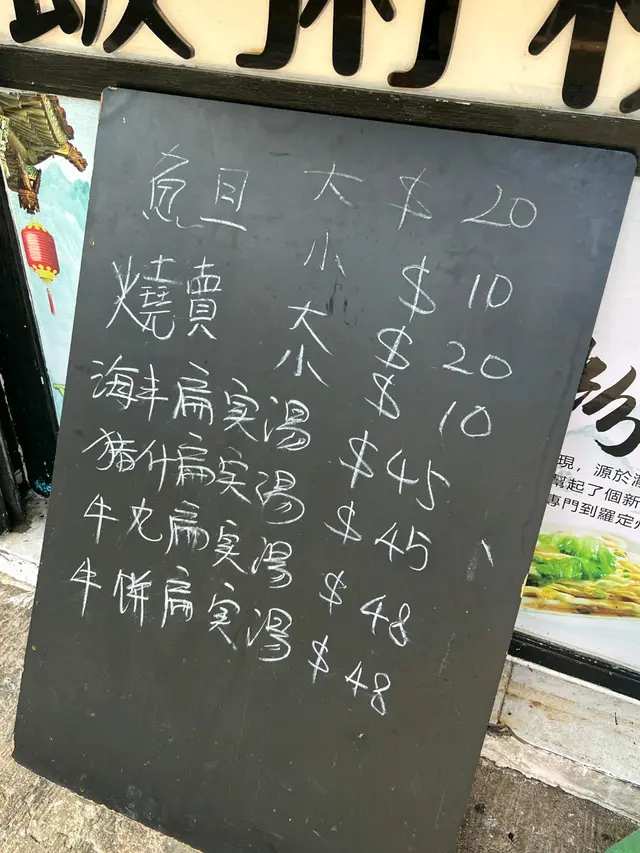 魚旦 大 $ 20
小 $ 10
燒賣 大 $ 20
小 $ 10
海丰扁实湯 $45
猪什扁实湯 $45
牛丸扁实湯 $48
牛餅扁实湯 $48
粉
現，源於
起了個新
專門到羅定